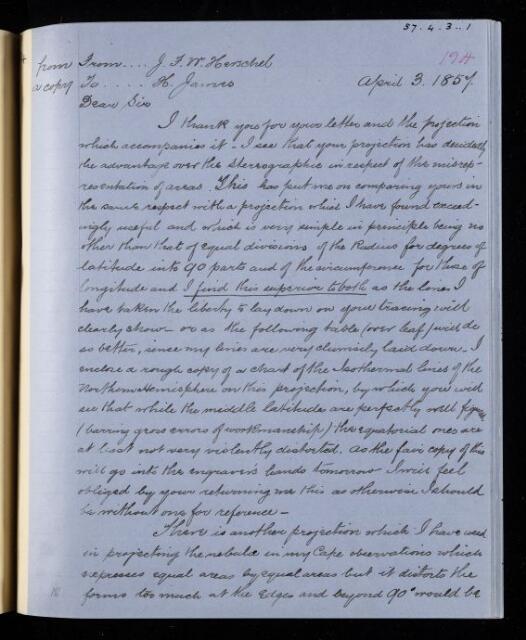 57.4.3..1
194
from From.... J. F. W. Herschel
a copy To..... H. James April 3. 1857
Dear Sir
I thank you for your letter and the projection
which accompanies it - I see that your projection has decidedly
the advantage over the stereographic in respect of the misrep-
resentation of areas. This has put me on comparing yours in
the same respect with a projection which I have found exceed-
ingly useful and which is very simple in principle being no
other than that of equal divisions of the Radius for degrees of
latitude into 90 parts and of the circumference for those of
longitude and I find this superior to both as the lines I
have taken the liberty to lay down on your tracing will
clearly show - or as the following table (over leaf) will do
so better, since my lines are very clumsily laid down. I
enclose a rough copy of a chart of the Isothermal lines of the
Northern Hemisphere on this projection, by which you will
see that while the middle latitude are perfectly well
(barring gross errors of workmanship) the equatorial ones are
at least not very violently distorted. As the fair copy of this
will go into the engraver's hands tomorrow I will feel
obliged by your returning me this as otherwise I should
be without one for reference -
There is another projection which I have used
in projecting the nebulae in my Cape observations which
expresses equal areas by equal areas but it distorts the
forms too much at the edges and beyond 90° would be